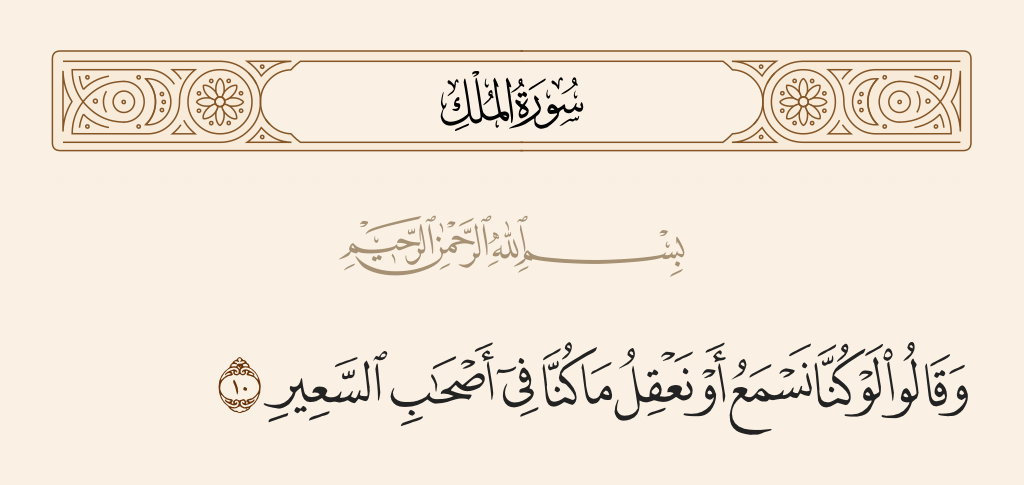 سُورَةُ المُلْكِ
بِسْمِ ٱللَّهِ ٱلرَّحْمَٰنِ ٱلرَّحِيمِ
وَقَالُوا۟ لَوْ كُنَّا نَسْمَعُ أَوْ نَعْقِلُ مَا كُنَّا فِىٓ أَصْحَٰبِ ٱلسَّعِيرِ ١٠